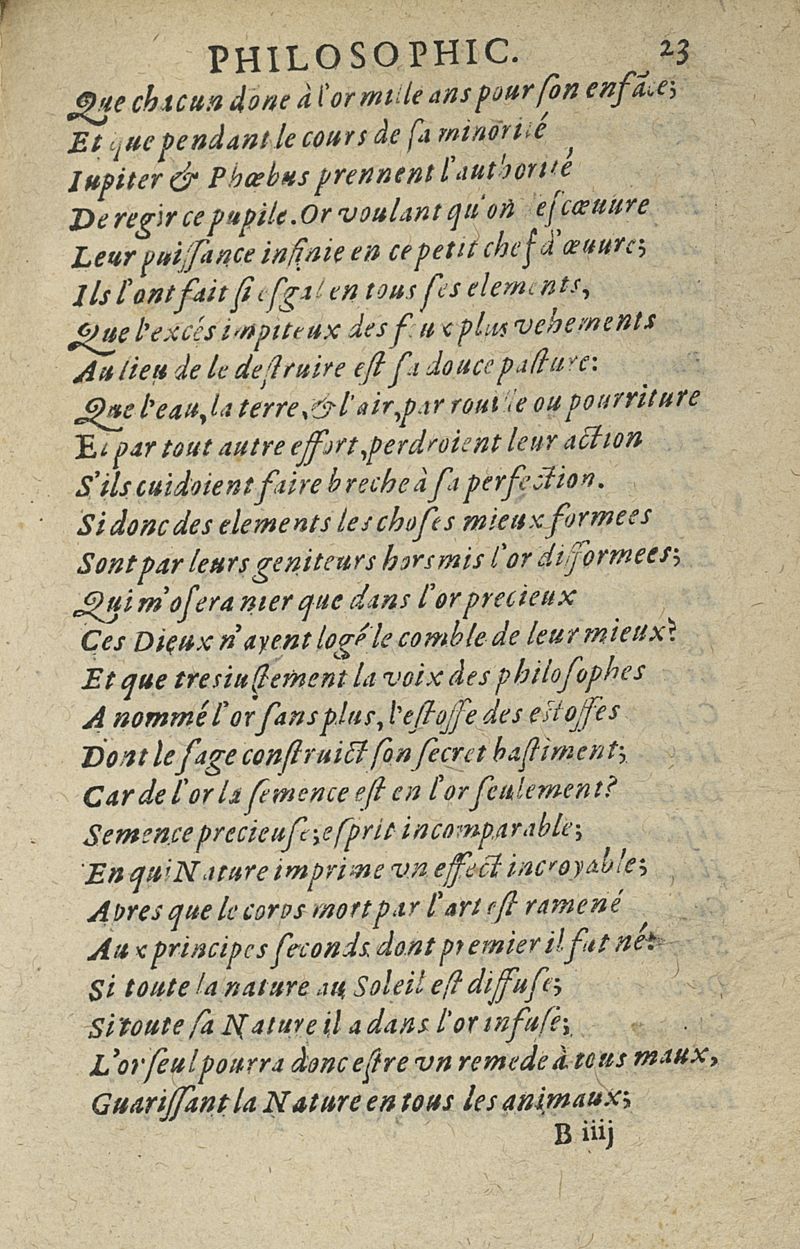 PHILOSOPHIC. 23
Que chacun done à l'or mille ans pour ſon enfāce;
Et que pendant le cours de ſa minorité
Iupiter & Phœbus prennent l'authorité
De regir ce pupile. Or voulant qu'on eſcœuure
Leur puiſſance infinie en ce petit chef d'œuure;
Ils l'ont fait ſi eſgal en tous ſes elements,
Que l'excés impiteux des feux plus vehements
Au lieu de le deſtruire eſt ſa douce paſture:
Que l'eau, la terre, & l'air, par rouille ou pourriture
Et par tout autre effort, perdroient leur action
S'ils cuidoient faire breche à ſa perfection.
Si donc des elements les choſes mieux formees
Sont par leurs geniteurs horsmis l'or difformees;
Qui m'oſera nier que dans l'or precieux
Ces Dieux n'ayent logé le comble de leur mieux?
Et que tresiuſtement la voix des philoſophes
A nommé l'or ſans plus, l'eſtoffe des eſtoffes
Dont le ſage conſtruict ſon ſecret baſtiment;
Car de l'or la ſemence eſt en l'or ſeulement?
Semence precieuſe; eſprit incomparable;
En qui Nature imprime vn effect incroyable;
Apres que le corps mort par l'art eſt ramené
Aux principes ſeconds dont premier il fut né:
Si toute la nature au Soleil eſt diffuſe;
Si toute ſa Nature il a dans l'or infuſe;
L'or ſeul pourra donc eſtre vn remede à tous maux,
Guariſſant la Nature en tous les animaux;
B iiij